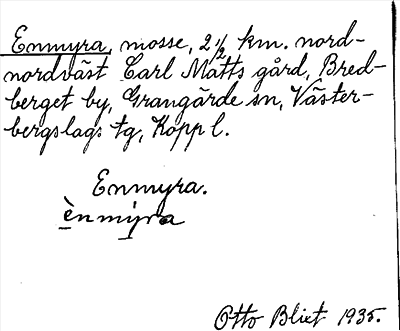 Enmyra, mosse, 2 1/2 km. nord-
nordväst Carl Matts gård, Bred-
berget by, Grangärde sn, Väster-
bergslags tg, Kopp l.
Enmyra.
ènmýra
Otto Blixt 1935.